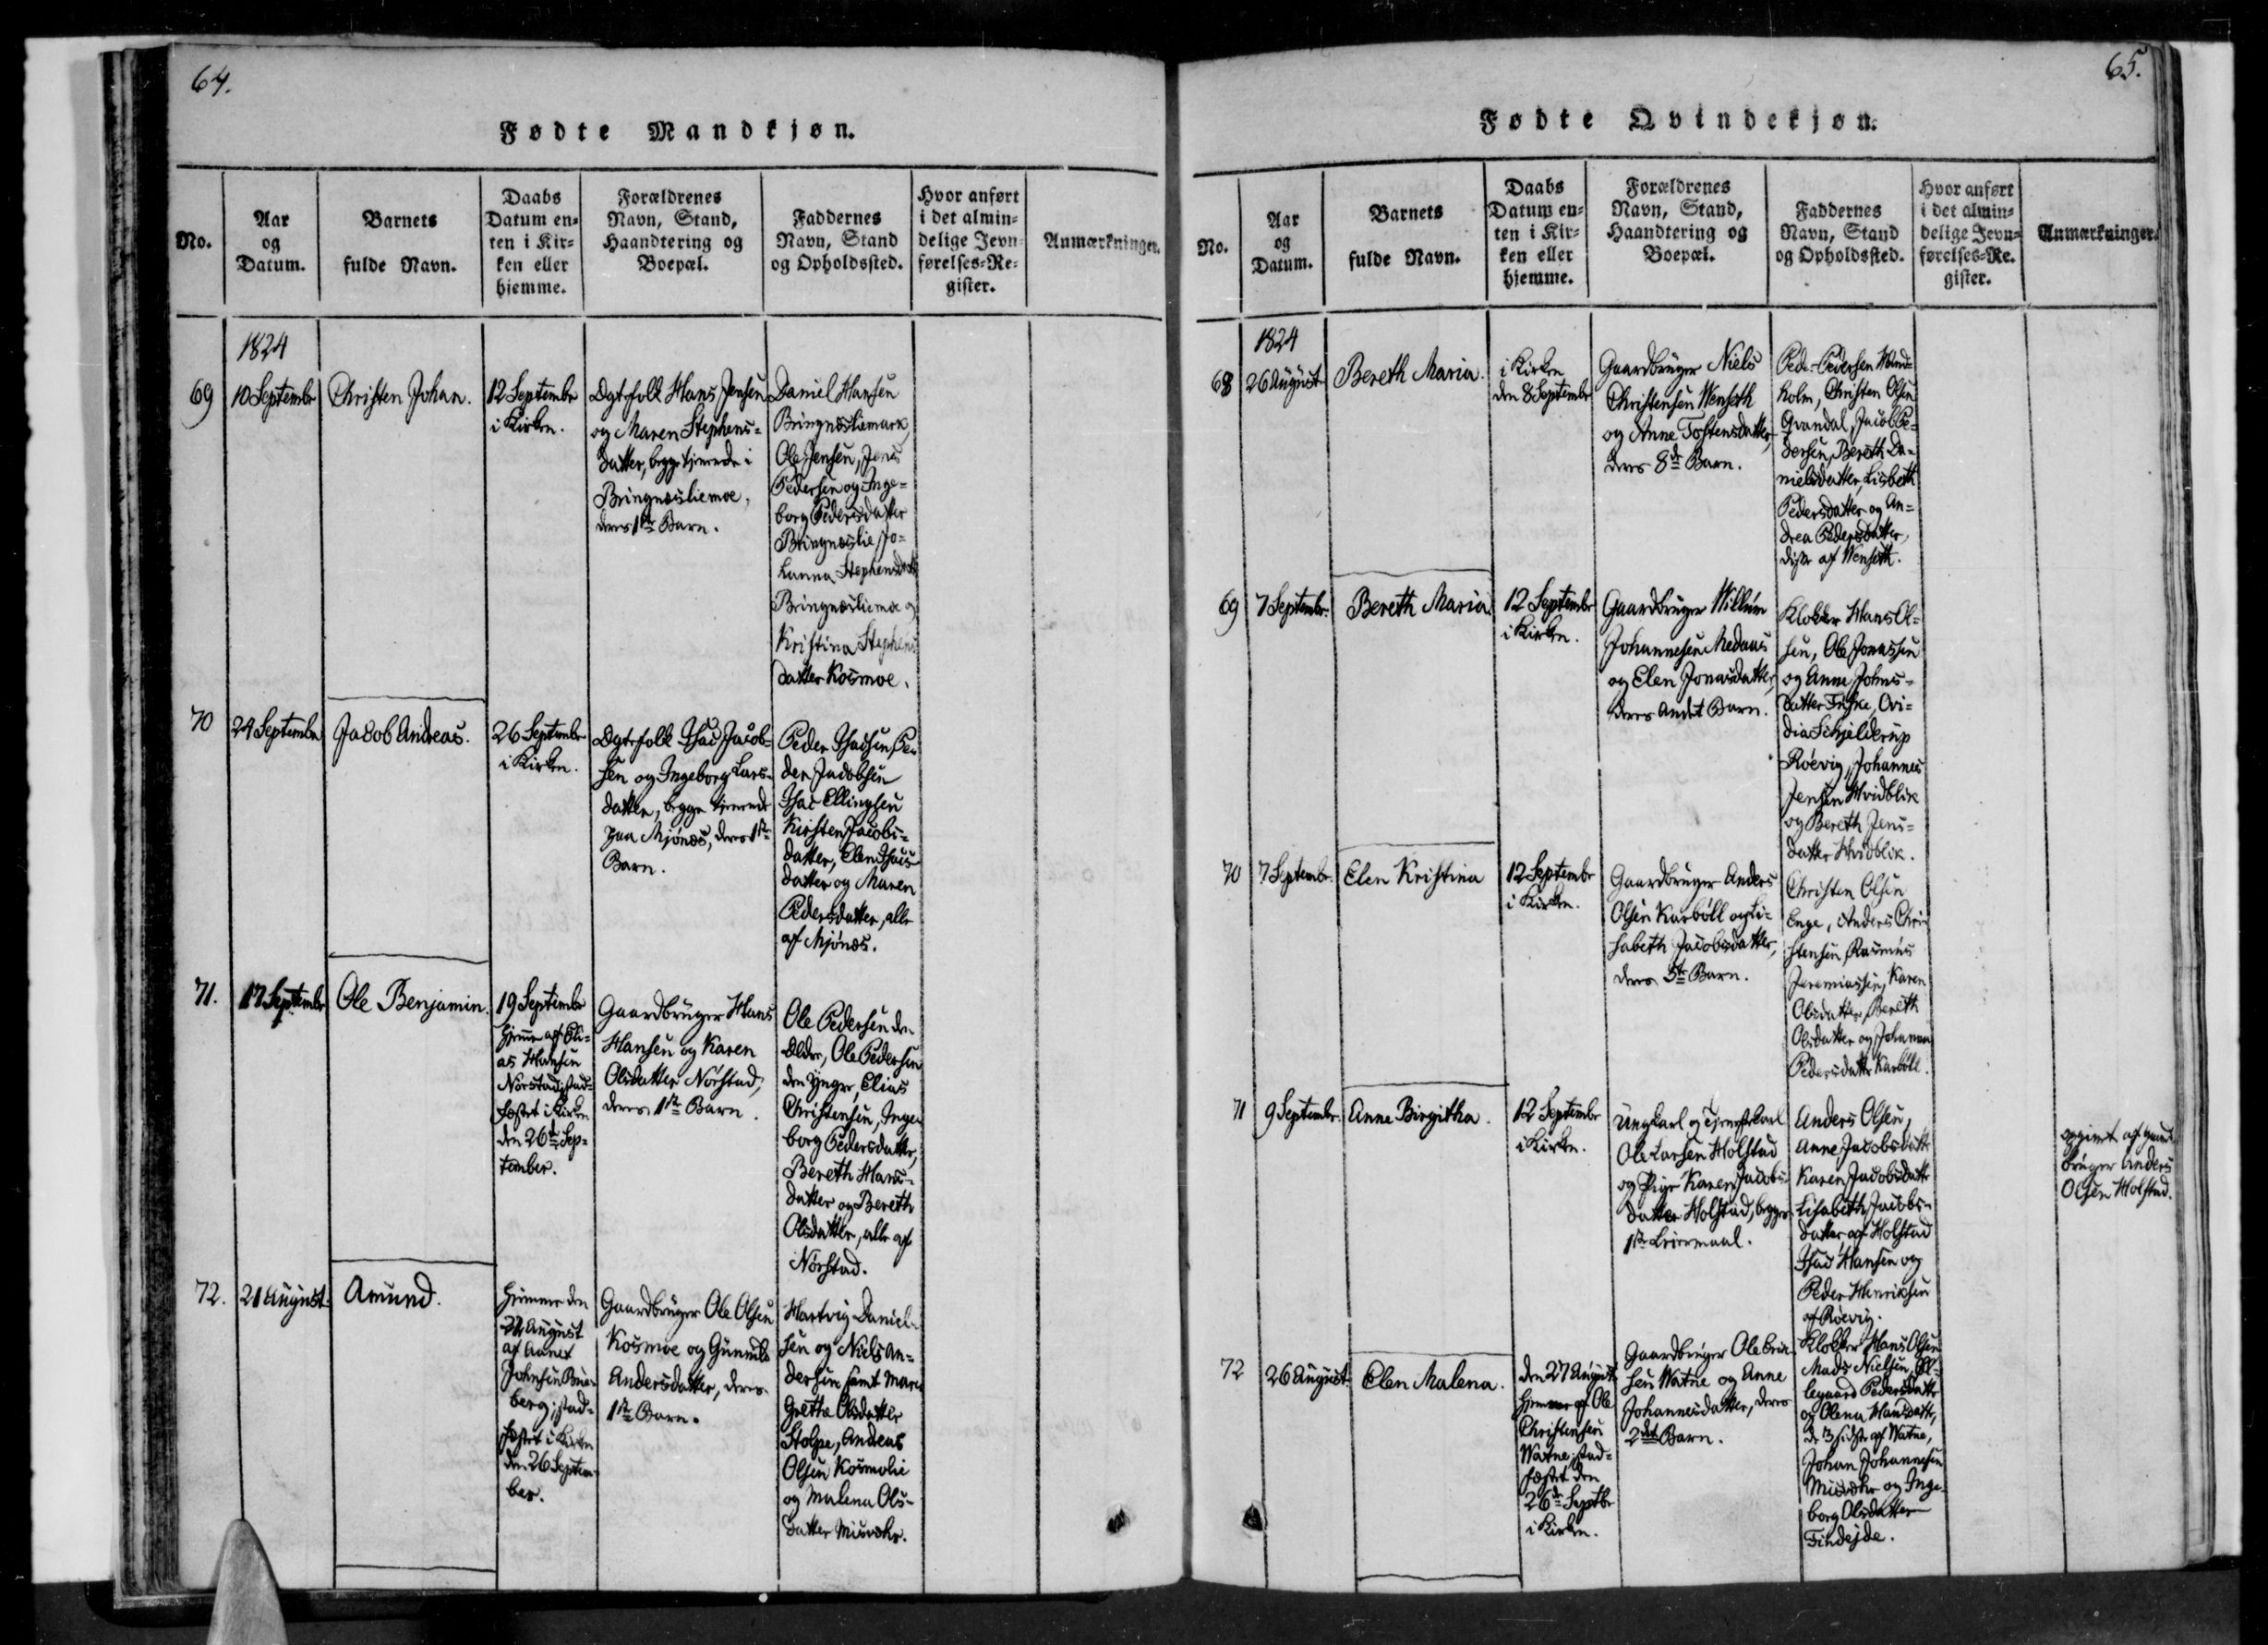 64.
Fødte Mandkjøn.
No.
Aar
og
Datum.
Barnets
fulde Navn.
Daabs
Datum en-
ten i Kir-
ken eller
hjemme.
Forældrenes
Navn, Stand,
Haandtering og
Boepæl.
Faddernes
Navn, Stand
og Opholdssted.
Hvor anført
i det almin-
delige Jevn-
førelses-Re-
gister.
Anmærkninger.
1824
69
10 Septembr
Christen Johan.
12 Septembr
i Kirken.
Dgtrfolk Hans Jensen
og Maren Stephens-
datter, begge tjenende i
Bringnæsliemoe,
deres 1te Barn.
Daniel Hansen
Bringnæsliemark,
Ole Jensen, Jens
Pedersen og Inge-
borg Pedersdatter
Bringnæslie, Jo-
hanna Stephensdatter
Bringnæsliemoe og
Kristina Stephens
datter Kosmoe.
70
24 Septembr
Jacob Andreas.
26 Septembr
i Kirken.
Dgtrfolk Isac Jacob-
sen og Ingeborg Lars-
datter, begge tjenende
paa Mjønæs, deres 1te
Barn.
Peder Isacsen, Pe-
der Jacobsen
Isac Ellingsen
Kirsten Jacobs-
datter, Elen Isacs
datter og Maren
Pedersdatter, alle
af Mjønæs.
71.
17 Septembr
Ole Benjamin.
19 Septembr
hjemme af Eli-
as Hansen
Nørstad; stad-
fæstet i Kirken
den 26de Sep-
tember.
Gaardbruger Hans
Hansen og Karen
Olsdatter Nørstad,
deres 1te Barn.
Ole Pedersen den
Ældre, Ole Pedersen
den Yngre, Elias
Christensen, Inge-
borg Pedersdatter,
Bereth Hans-
datter og Bereth
Olsdatter, alle af
Nørstad.
72.
21 August.
Amund.
hjemme den
August
af
Johnsen
berg; stad-
fæstet i Kirken
den 26 Septem-
ber.
Gaardbruger Ole Olsen
Kosmoe og Gunnild
Andersdatter, deres
1te Barn.
Hartvig Daniel-
sen og Niels An-
dersen samt Maren
Grethe Olsdatter
Stolpe, Andreas
Olsen Kosmolie
og Malena Ols-
datter Misvær.
65.
Fødte Qvindekjøn.
No.
Aar
og
Datum.
Barnets
fulde Navn.
Daabs
Datum en-
ten i Kir-
ken eller
hjemme.
Forældrenes
Navn, Stand,
Haandtering og
Boepæl.
Faddernes
Navn, Stand
og Opholdssted.
Hvor anført
i det almin-
delige Jevn-
førelses-Re-
gister.
Anmærkninger.
1824
68
26 August
Bereth Maria.
i Kirken
den 8 Septembr
Gaardbruger Niels
Christensen Wenseth
og Anne Tostensdatter,
deres 8de Barn.
Peder Pedersen
holm, Christen Olsen
Qvandal, Jacob Pe-
dersen, Bereth Da-
nielsdatter, Lisbeth
Pedersdatter og An-
drea Pedersdatter,
disse af Wenseth.
69
7 Septembr.
Bereth Maria
12 Septembr
i Kirken.
Gaardbruger Willum
Johannesen Nedaas
og Elen Jonasdatter,
deres andet Barn.
Klokker Hans Ol-
sen, Ole Jonassen
og Anne Johns-
datter Friske, Ovi-
dia Schjelderup
Røevig, Johannes
Jensen Hvidblik
og Bereth Jens-
datter Hvidblik.
70
7 Septembr.
Elen Kristina
12 Septembr
i Kirken.
Gaardbruger Anders
Olsen Karbøll og Li-
sabeth Jacobsdatter,
deres 5te Barn.
Christen Olsen
Enge, Anders Chri-
stensen, Rasmus
Jeremiassen, Karen
Olsdatter, Bereth
Olsdatter og Johanna
Pedersdatter Karbøll.
71
9 Septembr.
Anne Birgitha.
12 Septembr
i Kirken.
Ungkarl og Tjenestekarl
Ole Larsen Holstad
og Pige Karen Jacobs-
datter Holstad, begges
1te Leiermaal.
Anders Olsen,
Anne Jacobsdatter
Karen Jacobsdatter
Lisabeth Jacobs-
datter, af Holstad
Isac Hansen og
Peder Henriksen
af Røevig.
opgivet af Gaard-
bruger Anders
Olsen Holstad.
72
26 August.
Elen Malena.
den 27 August
hjemme af Ole
Christensen
Watne; stad-
fæstet den
26de Septbr
i Kirken.
Gaardbruger Ole Erik-
sen Watne og Anne
Johannesdatter, deres
2det Barn.
Klokker Hans Olsen
Mads Nielsen, Ol-
legaard Pedersdatter
og Olena Hansdatter,
de 3 sidste af Watne,
Johan Johannesen
Misvær og Inge-
borg Olsdatter
Findejde.